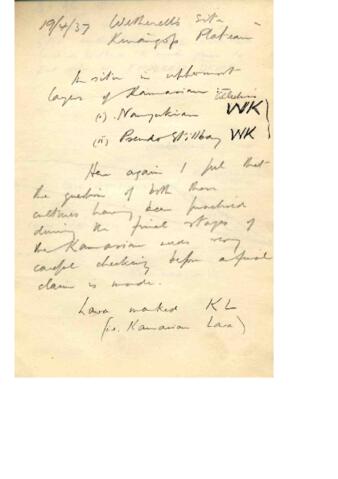 19/4/37 Wetherell's Site -
Kinangop Plateau
In situ in uppermost
layers of Kamasian
(i) Nanyukian WK
(ii) Pseudo Stillbay WK
Here again I feel that
the question of both these
cultures having been practised
during the final stages of
the Kamasian needs very
careful checking before a final
claim is made.
Lava marked KL
(i.e. Kamasian Lava)